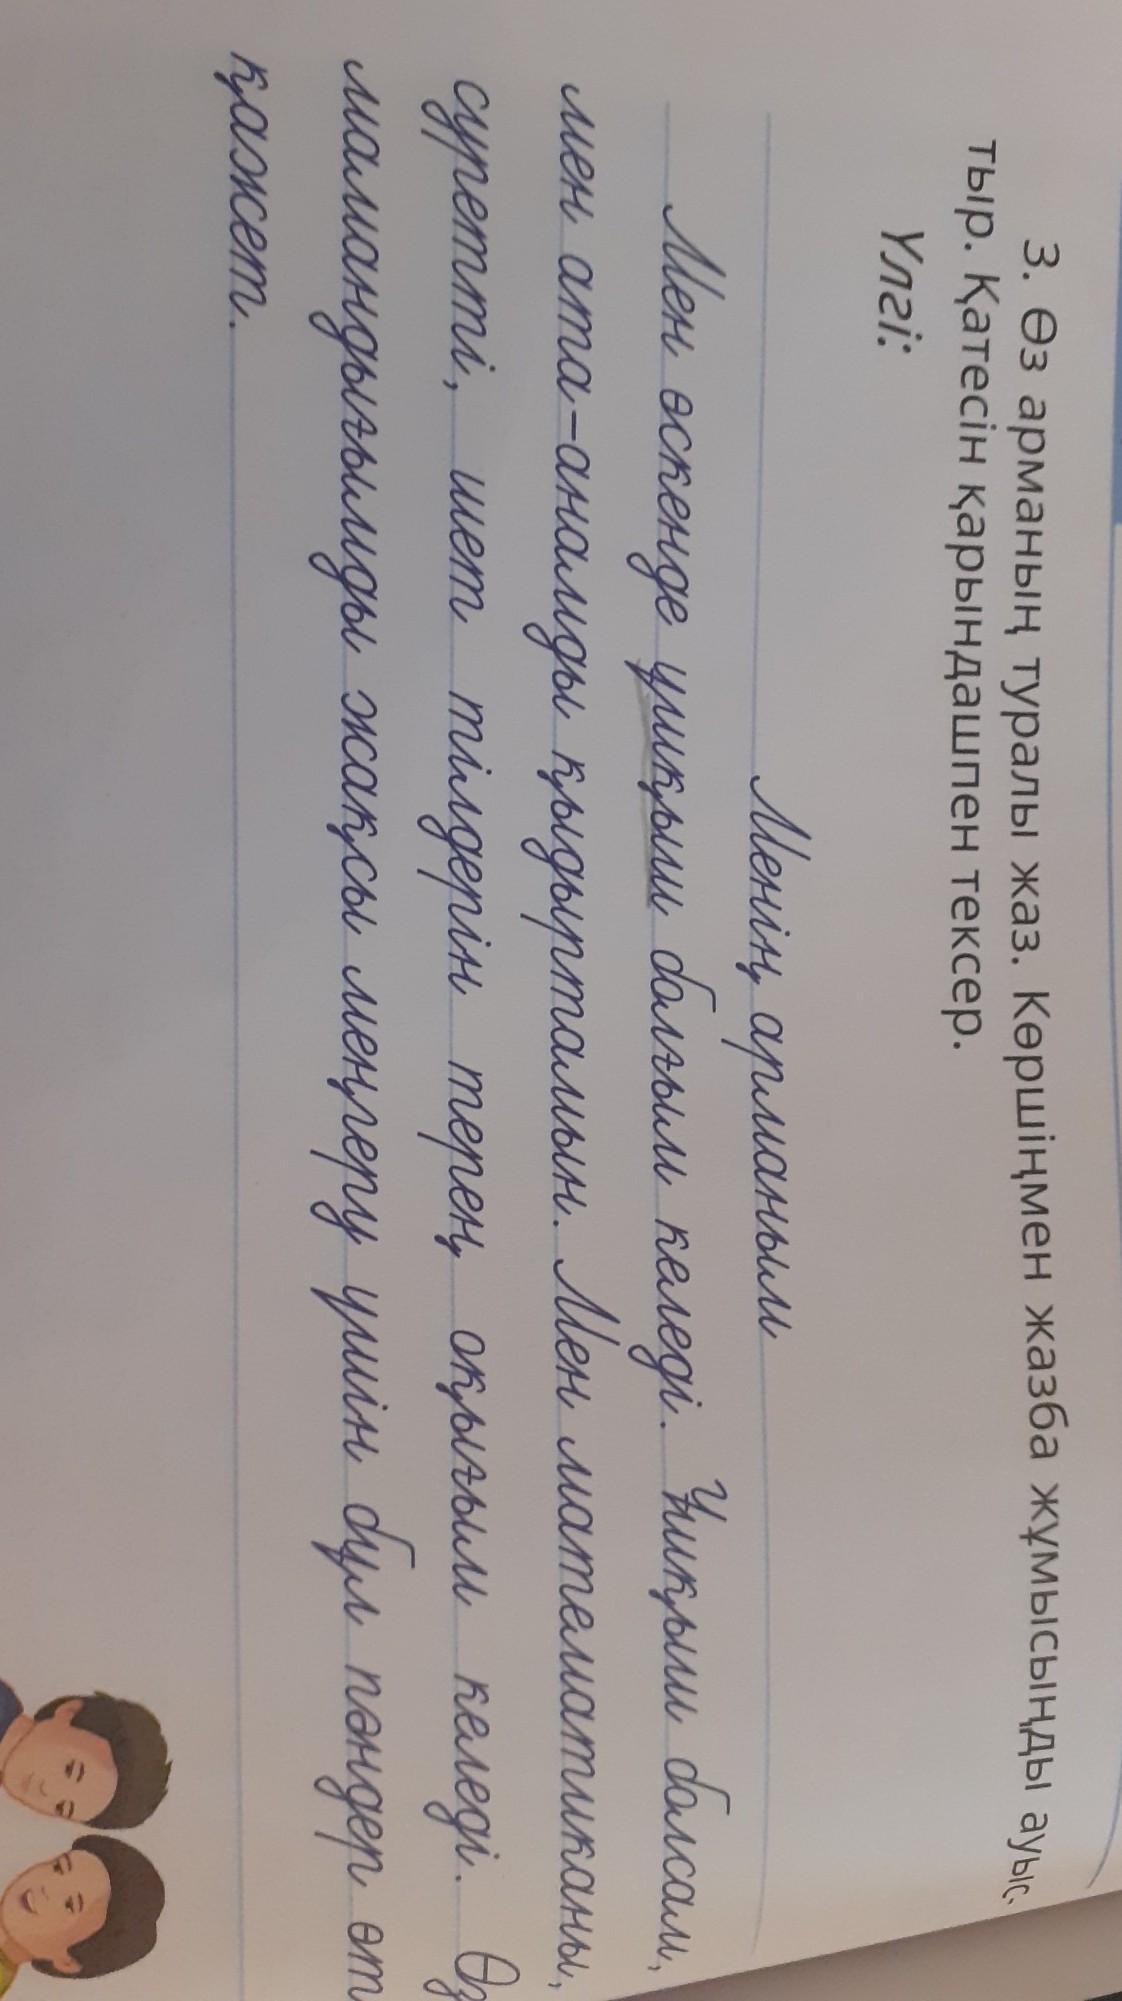 3. Өз арманың туралы жаз. Көршіңмен жазба жұмысыңды ауыс-
тыр. Қатесін қарындашпен тексер.
Үлгі:
Менің арманым
Мен өскенде ұшқыш болғым келеді. Ұшқыш болсам,
мен ата-анамды қыдыртамын. Мен математиканы,
суретті, шет тілдерін терең оқығым келеді. Өз
мамандығымды жақсы меңгеру үшін бұл пәндер өт
қажет.